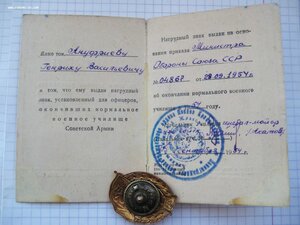 Дано тов. Ануфриеву
Генриху Васильевичу
в том, что ему выдан нагрудный
знак, установленный для офицеров,
окончивших нормальное
военное училище
Советской Армии
Нагрудный знак выдан на осно-
вании приказа Министра
Обороны Союза ССР
№ 04868 от 1954 г.
об окончании нормального военного
училища в 54 году.
Начальник
генерал-майор
1954 г.